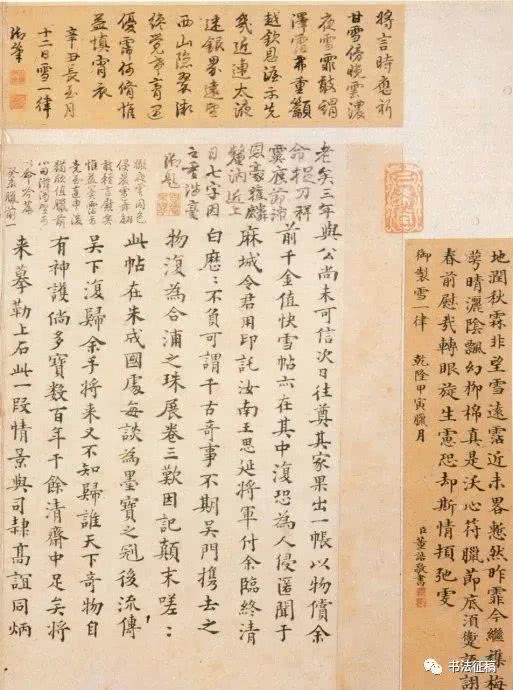 地潤秋霖非望雪遠霑近未畧愁然昨霏今繼攙梅
萼晴灑陰飄幻柳棉真是沃心符臘節底須蹙額詡
春前慰哉轉眼旋生慮恐却斯情類弛雯
御製雪一律 乾隆甲寅臘月
臣董誥敬書
將言時應祈
甘雪傍晚雲濃
夜雪霏鼓謂
澤霑弗重籲
越欽恩渥示先
幾近連太液
迷銀界遠望
西山隱翠微
終覺希膏遇
優霈何脩惟
益慎宵衣
辛丑長至月
十二日雪一律
御筆
老矣三年與公尚未可信次日往奠其家果出一帳以物償余
前千金值快雪帖亦在其中復恐為人侵匿聞于
麻城令君用印託汝南王思延將軍付余臨終清
白歷歷不負可謂千古奇事不期吳門携去之
物復為合浦之珠展卷三歎因記顛末嗟嗟
此帖在朱成國處每談為墨寶之冠後流傳
吳下復歸余手將來又不知歸誰天下奇物自
有神護倘多寶數百年于余清齋中足矣將
來摹勒上石此一段情景與司隸高誼同炳
御題
书法征稿